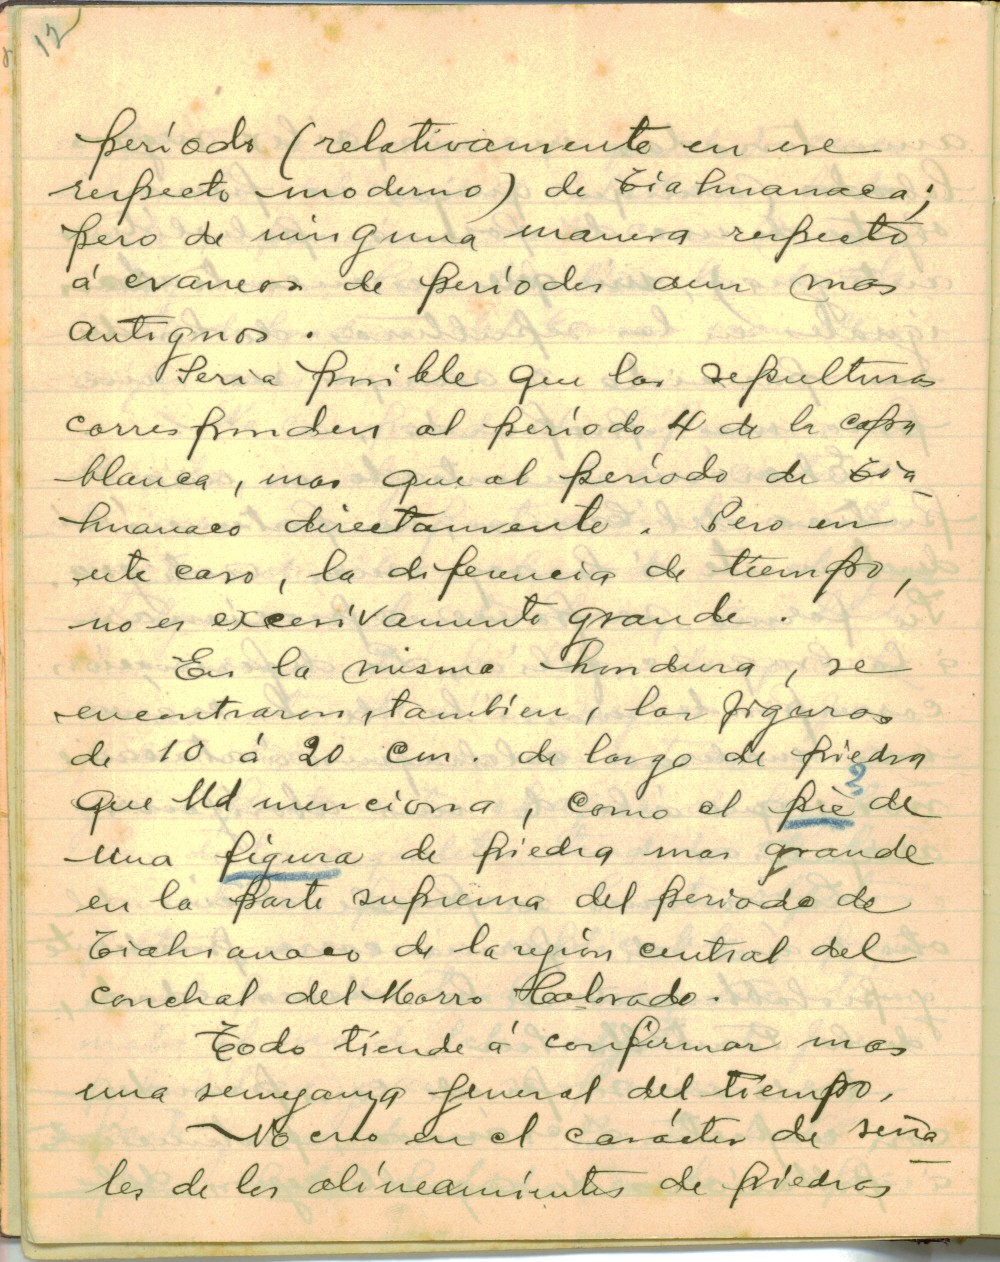 12
período (relativamente en ese
respecto moderno) de Tiahuanaca;
pero de ninguna manera respecto
á craneos de períodos aun mas
antiguos.
Seria posible que las sepulturas
corresponden al período 4 de la capa
blanca, mas que al período de Tia
huanaco directamente. Pero en
este caso, la diferencia de tiempo,
no es excesivamente grande.
En la misma hondura, se
encontraron, tambien, las figuras
de 10 á 20 cm. de largo de piedra
que Ud menciona, como el pie ? de
una figura de piedra mas grande
en la parte suprema del periodo de
Tiahuanaco de la región central del
conchal del Morro Colorado.
Todo tiende á confirmar mas
una semejanza general del tiempo.
No creo en el carácter de seña
les de los alineamientos de piedras